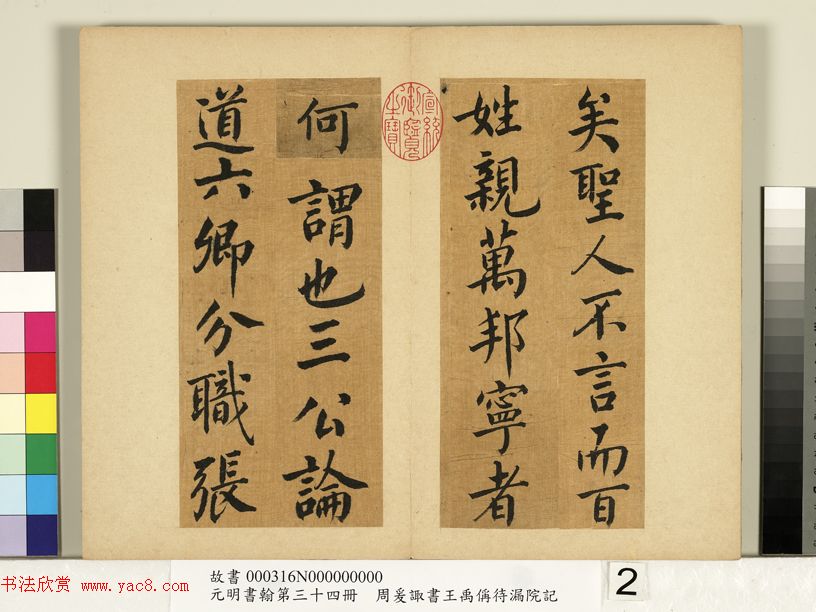 矣聖人不言而百
姓親萬邦寧者
何謂也三公論
道六卿分職張
宣統
御覽
之寶
故書 000316N000000000
元明書翰第三十四冊 周爰諏書王禹偁待漏院記
2
书法欣赏 www.yac8.com